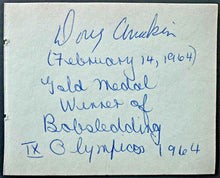 Doug Anakin
(February 14, 1964)
Gold Medal
Winner of
Bobsledding
IX Olympics 1964